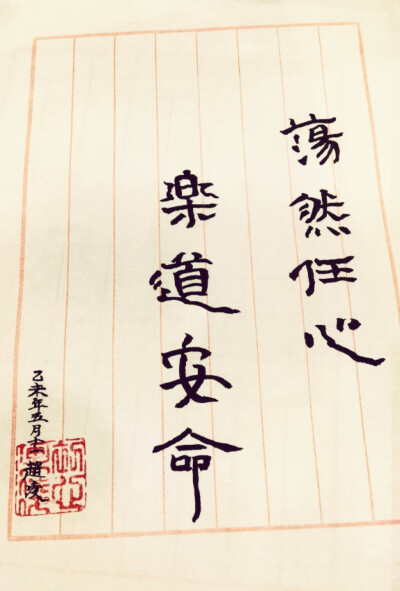 蕩然任心
楽道安命
乙未年五月十
趙